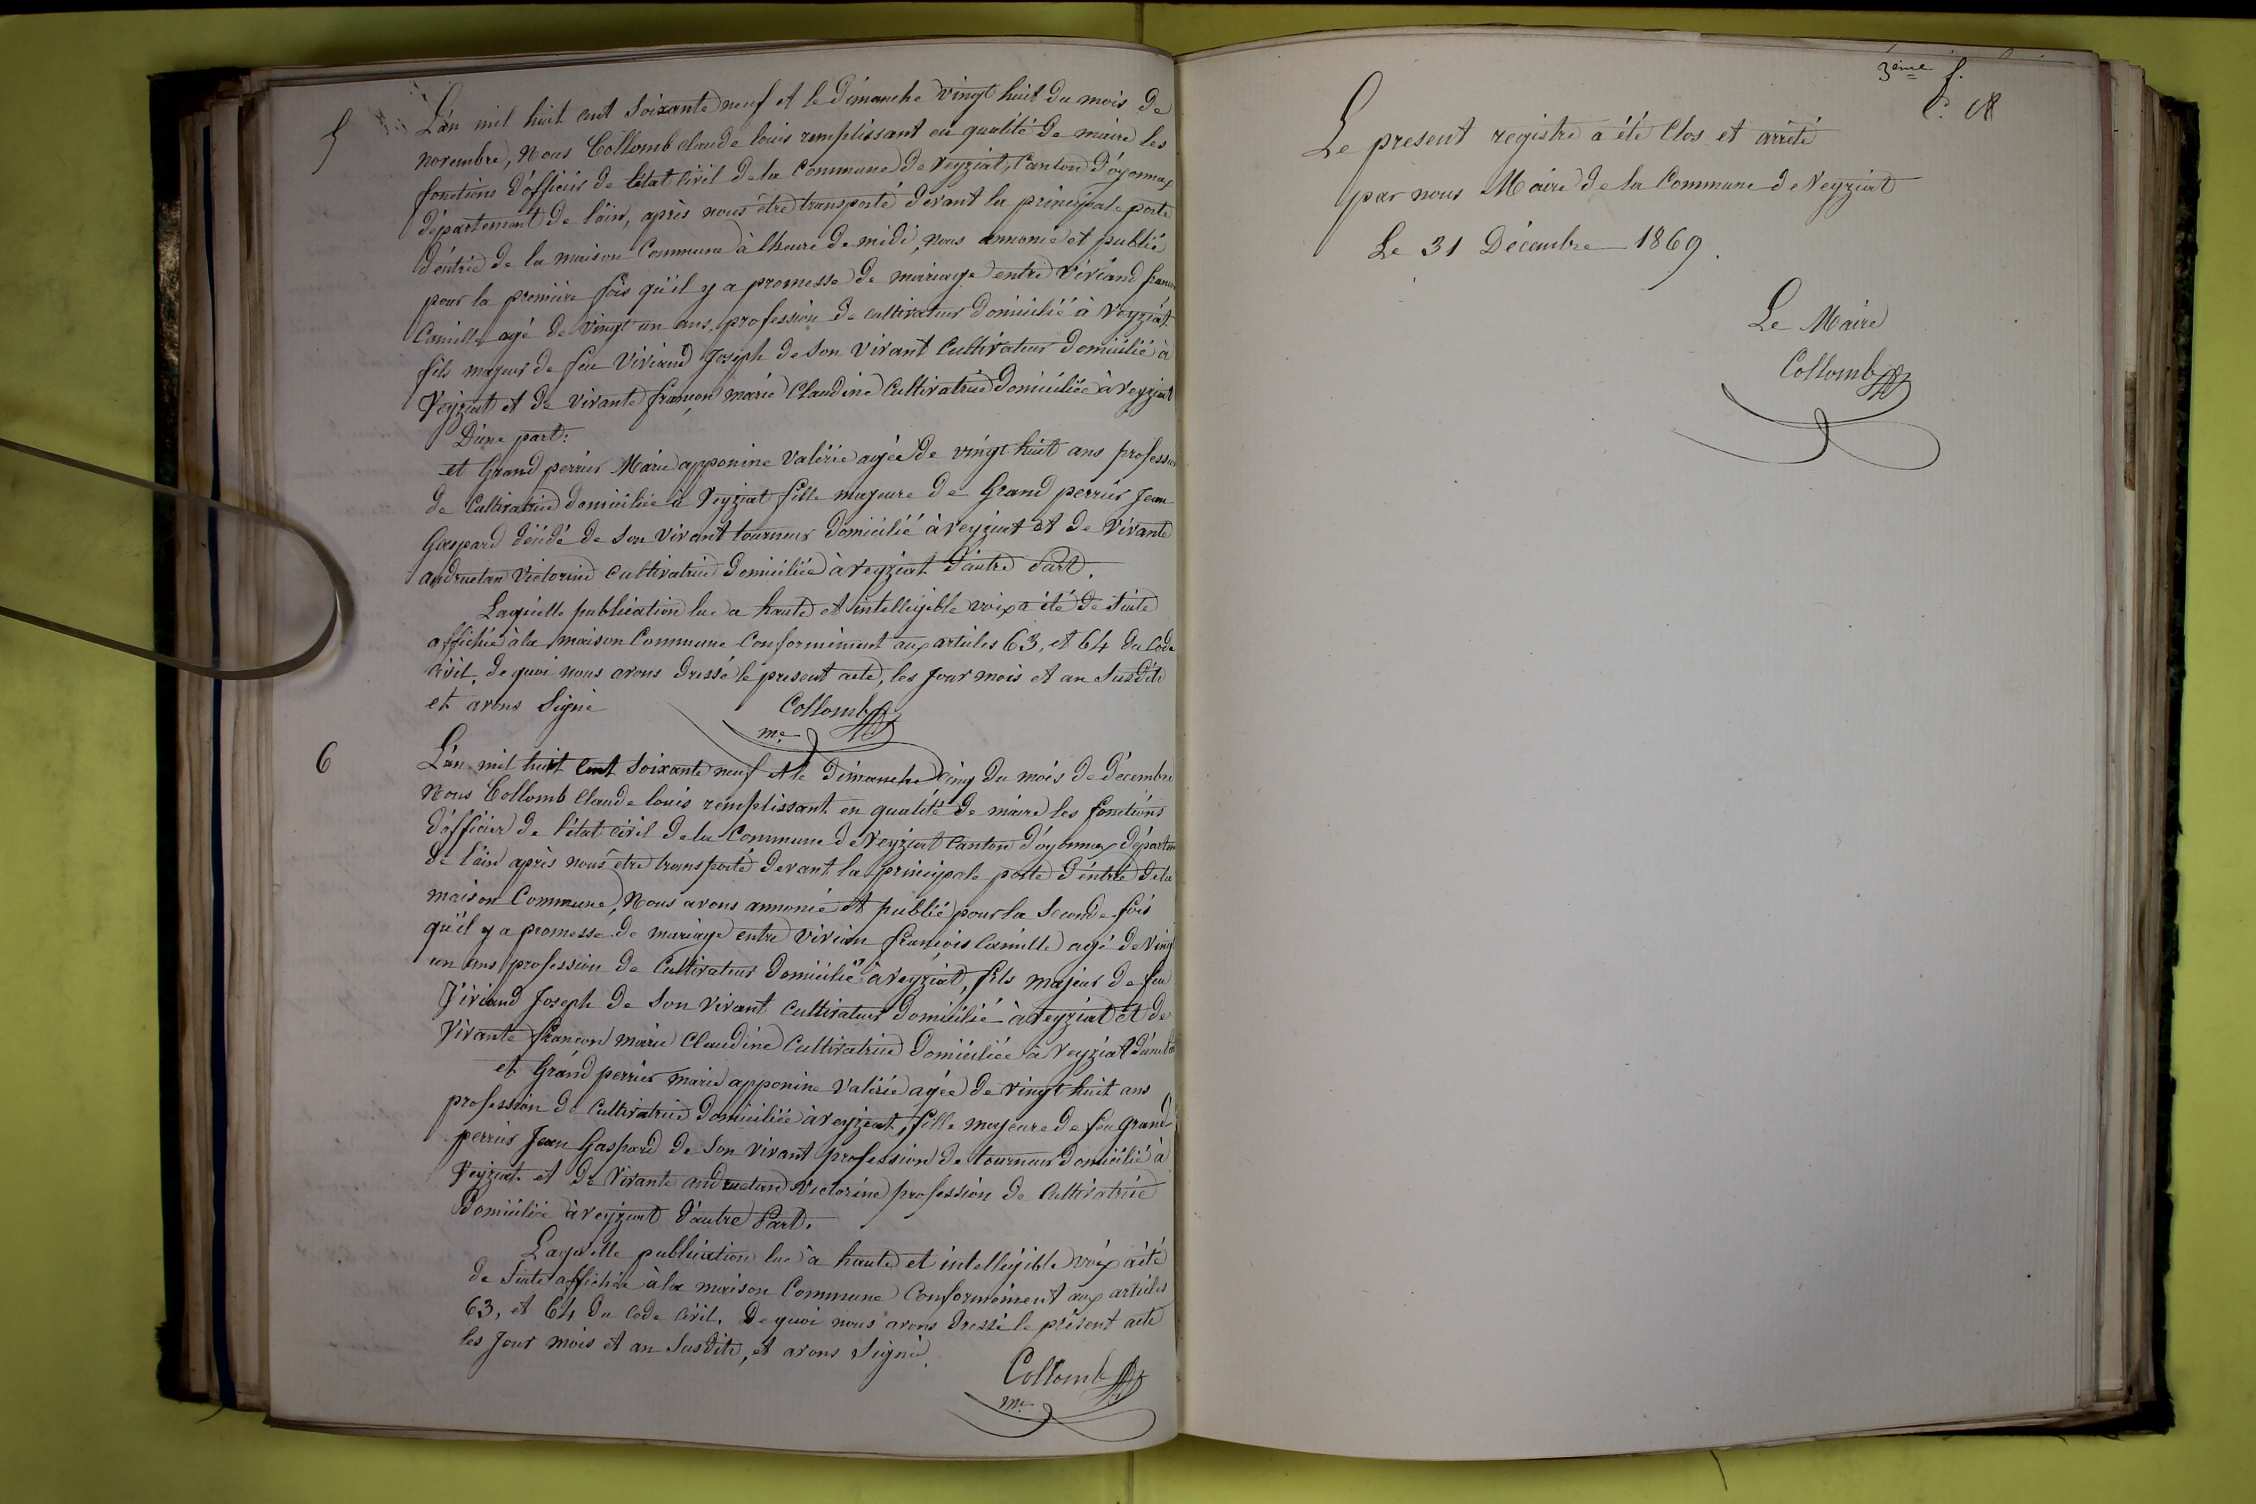 5
L'an mil huit cent soixante neuf et le dimanche vingt huit du mois de
novembre, Nous Collomb Claude louis remplissant en qualité de maire les
fonctions d'officier de l'état civil de la Commune de Veyziat, Canton d'oyonnax
département de l'ain, après nous être transporté devant la principale porte
d'entrée de la maison Commune à l'heure de midi, nous annoncé et publié
pour la première fois qu'il y a promesse de mariage entre Viviand
Camille agé de vingt un ans, profession de cultivateur domicilié à Veyziat
fils majeur de feu Viviand Joseph de son vivant Cultivateur domicilié à
Veyziat et de vivante françon marie Claudine Cultivatrice domiciliée à Veyziat
D'une part:
et Grand perrier Marie apponine Valérie agée de vingt huit ans
de Cultivatrice domiciliée à Veyziat fille majeure de Grand perrier Jean
Gaspard décédé de son vivant tourneur domicilié à Veyziat et de vivante
andruetan Victorine cultivatrice domiciliée à Veyziat d'autre Part.
Laquelle publication lue a haute et intelligible voix a été de suite
affichée à la maison Commune Conformément aux articles 63, et 64 du Code
civil, de quoi nous avons dressé le présent acte, les jour mois et an susdits
et avons signé
Collomb
me
6
L'an mil huit cent soixante neuf et le dimanche cinq du mois de décembre
Nous Collomb Claude louis remplissant en qualité de maire les fonctions
d'officier de l'état civil de la Commune de Veyziat Canton d'oyonnax
de l'ain après nous être transporté devant la principale porte d'entrée de la
maison Commune, Nous avons annoncé et publié pour la seconde fois
qu'il y a promesse de mariage entre vivian françois Camille agé de vingt
un ans profession de Cultivateur domicilié à Veyziat, fils majeur de feu
Viviand Joseph de son vivant cultivateur domicilié à Veyziat et de
vivante françon marie Claudine Cultivatrice domiciliée à Veyziat
et Grand perrier marie apponine Valérie agée de vingt huit ans
profession de Cultivatrice domiciliée à Veyziat, fille majeure de feu grand
perrier Jean Gaspard de son vivant profession de tourneur domicilié à
Veyziat et de vivante andruetan victorine profession de Cultivatrice
domiciliée à Veyziat d'autre Part.
Laquelle publication lue à haute et intelligible voix a été
de suite affichée à la maison Commune Conformément aux articles
63, et 64 du Code civil. De quoi nous avons dressé le présent acte
les jour mois et an susdits, et avons signé.
Collomb
me
3ème f.
Le present registre a été Clos et arrété
par nous Maire de la Commune de Veyziat
Le 31 Décembre 1869.
Le Maire
Collomb